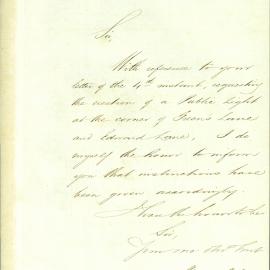 Sir,
With reference to your
letter of the 4th instant, requesting
the erection of a Public Light
at the corner of Green's Lane
and Edward Lane, I do
myself the honor to inform
you that instructions have
been given accordingly.
I have the honor to be
Sir,
Your mo Obt